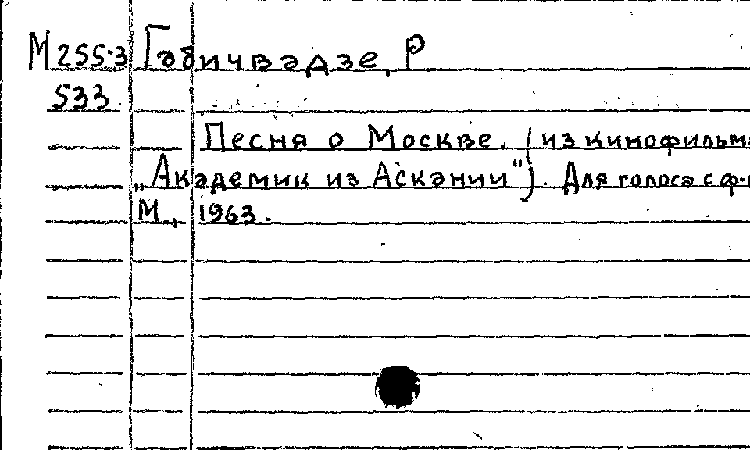 М255.3 Габичвадзе, Р
533
Песня о Москве. (из кинофильма
„Академик из Аскании"). Для голоса с ф-
М., 1963.